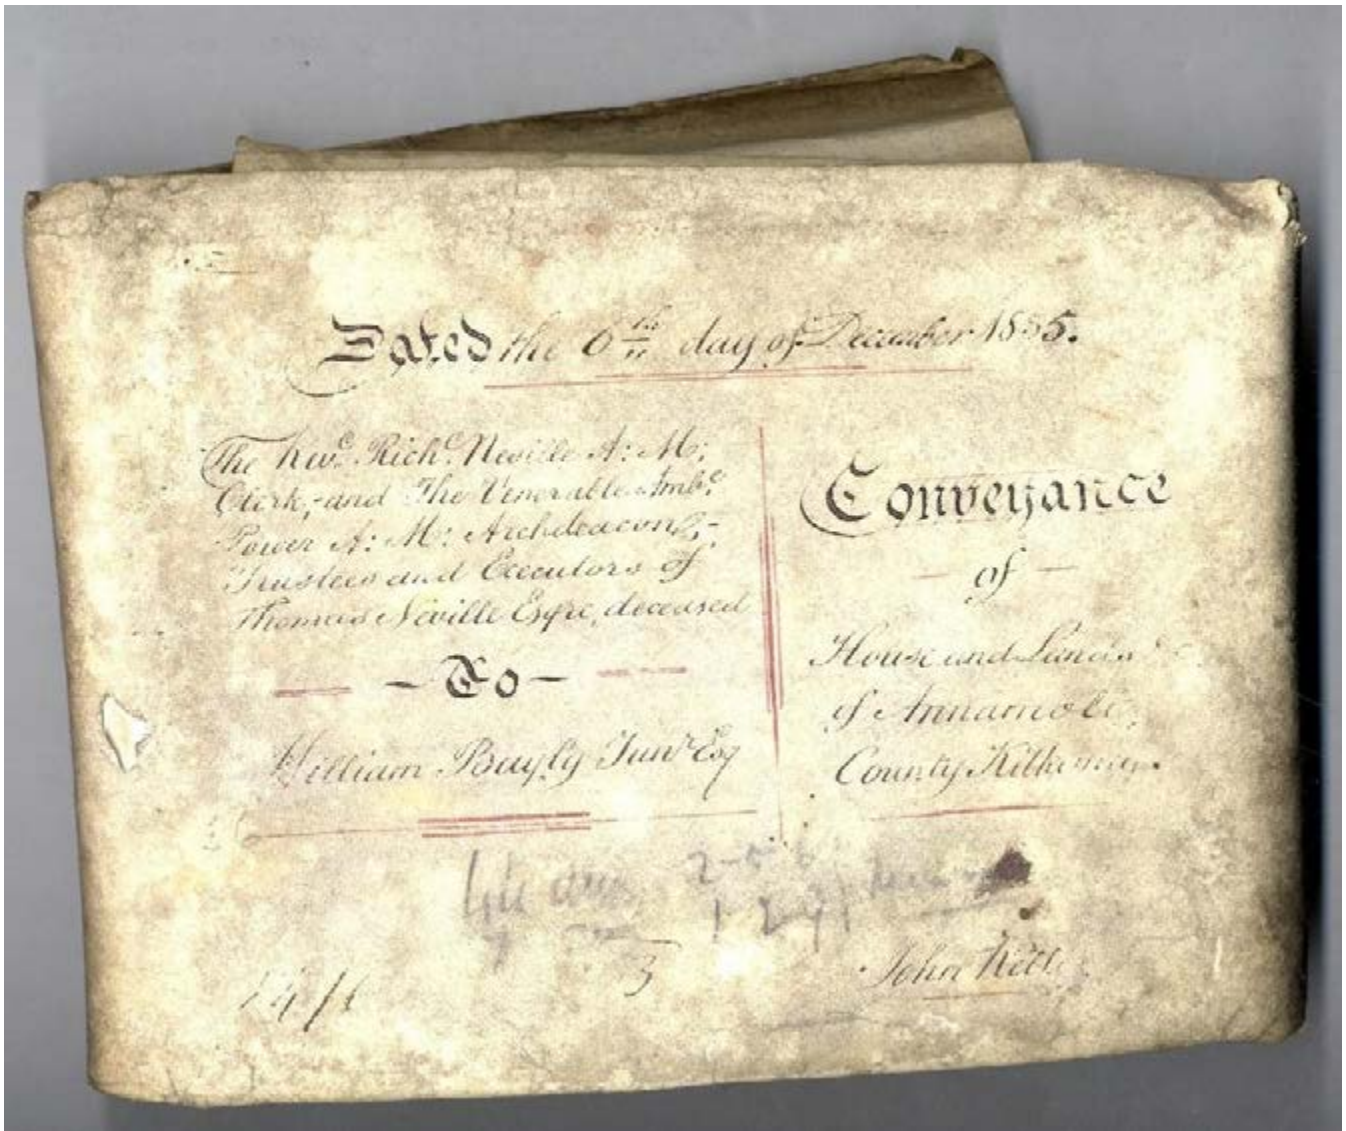 Dated the 6th day of December 1855.
The Revd. Richd. Neville A: M:
Clerk, and The Venerable Ambe.
Power A: M: Archdeacon,
Trustees and Executors of
Thomas Neville Esqre, deceased
- To -
William Bayly Junr Esq
Conveyance
of
House and Lands
of Annamolt
County Kilkenny.
3
John Kelly